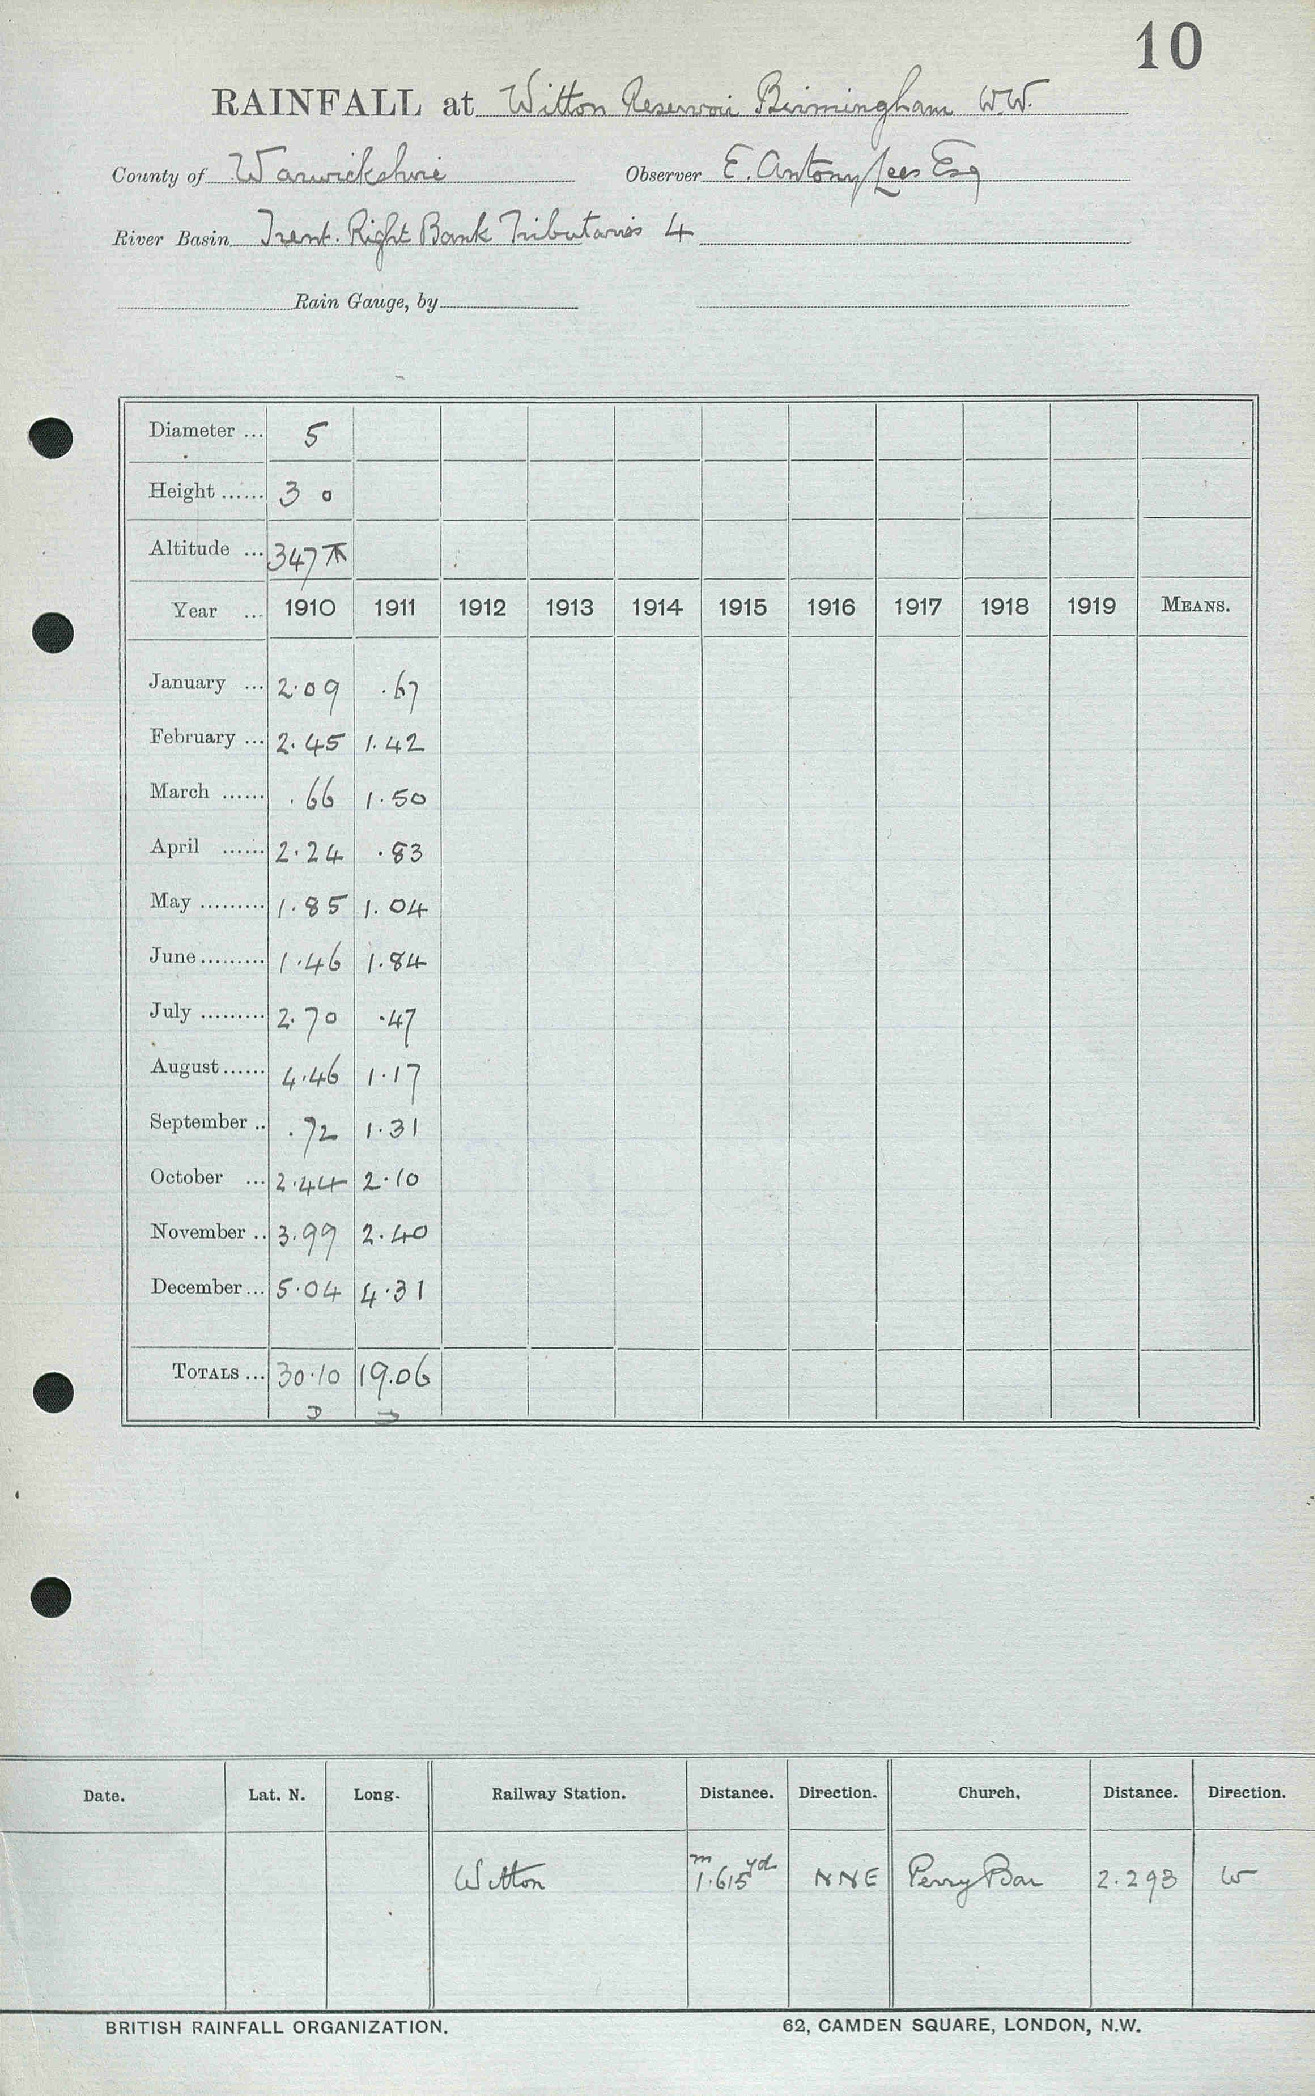 10
RAINFALL at Witton Reservoir Birmingham W.W.
County of Warwickshire Observer E. Antony Lees Esq
River Basin Trent. Right Bank Tributaries 4
Rain Gauge, by
Diameter ... 5
Height ...... 3 0
Altitude ... 347
Year ... 1910 1911 1912 1913 1914 1915 1916 1917 1918 1919 MEANS.
January ... 2.09 .67
February ... 2.45 1.42
March ...... .66 1.50
April ...... 2.24 .83
May ......... 1.85 1.04
June ......... 1.46 1.84
July ......... 2.70 .47
August ...... 4.46 1.17
September .. .72 1.31
October ... 2.44 2.10
November .. 3.99 2.40
December ... 5.04 4.31
TOTALS ... 30.10 19.06
Date. Lat. N. Long. Railway Station. Distance. Direction. Church. Distance. Direction.
m yd
Witton 1.615 NNE Perry Bar 2.293 W
BRITISH RAINFALL ORGANIZATION. 62, CAMDEN SQUARE, LONDON, N.W.